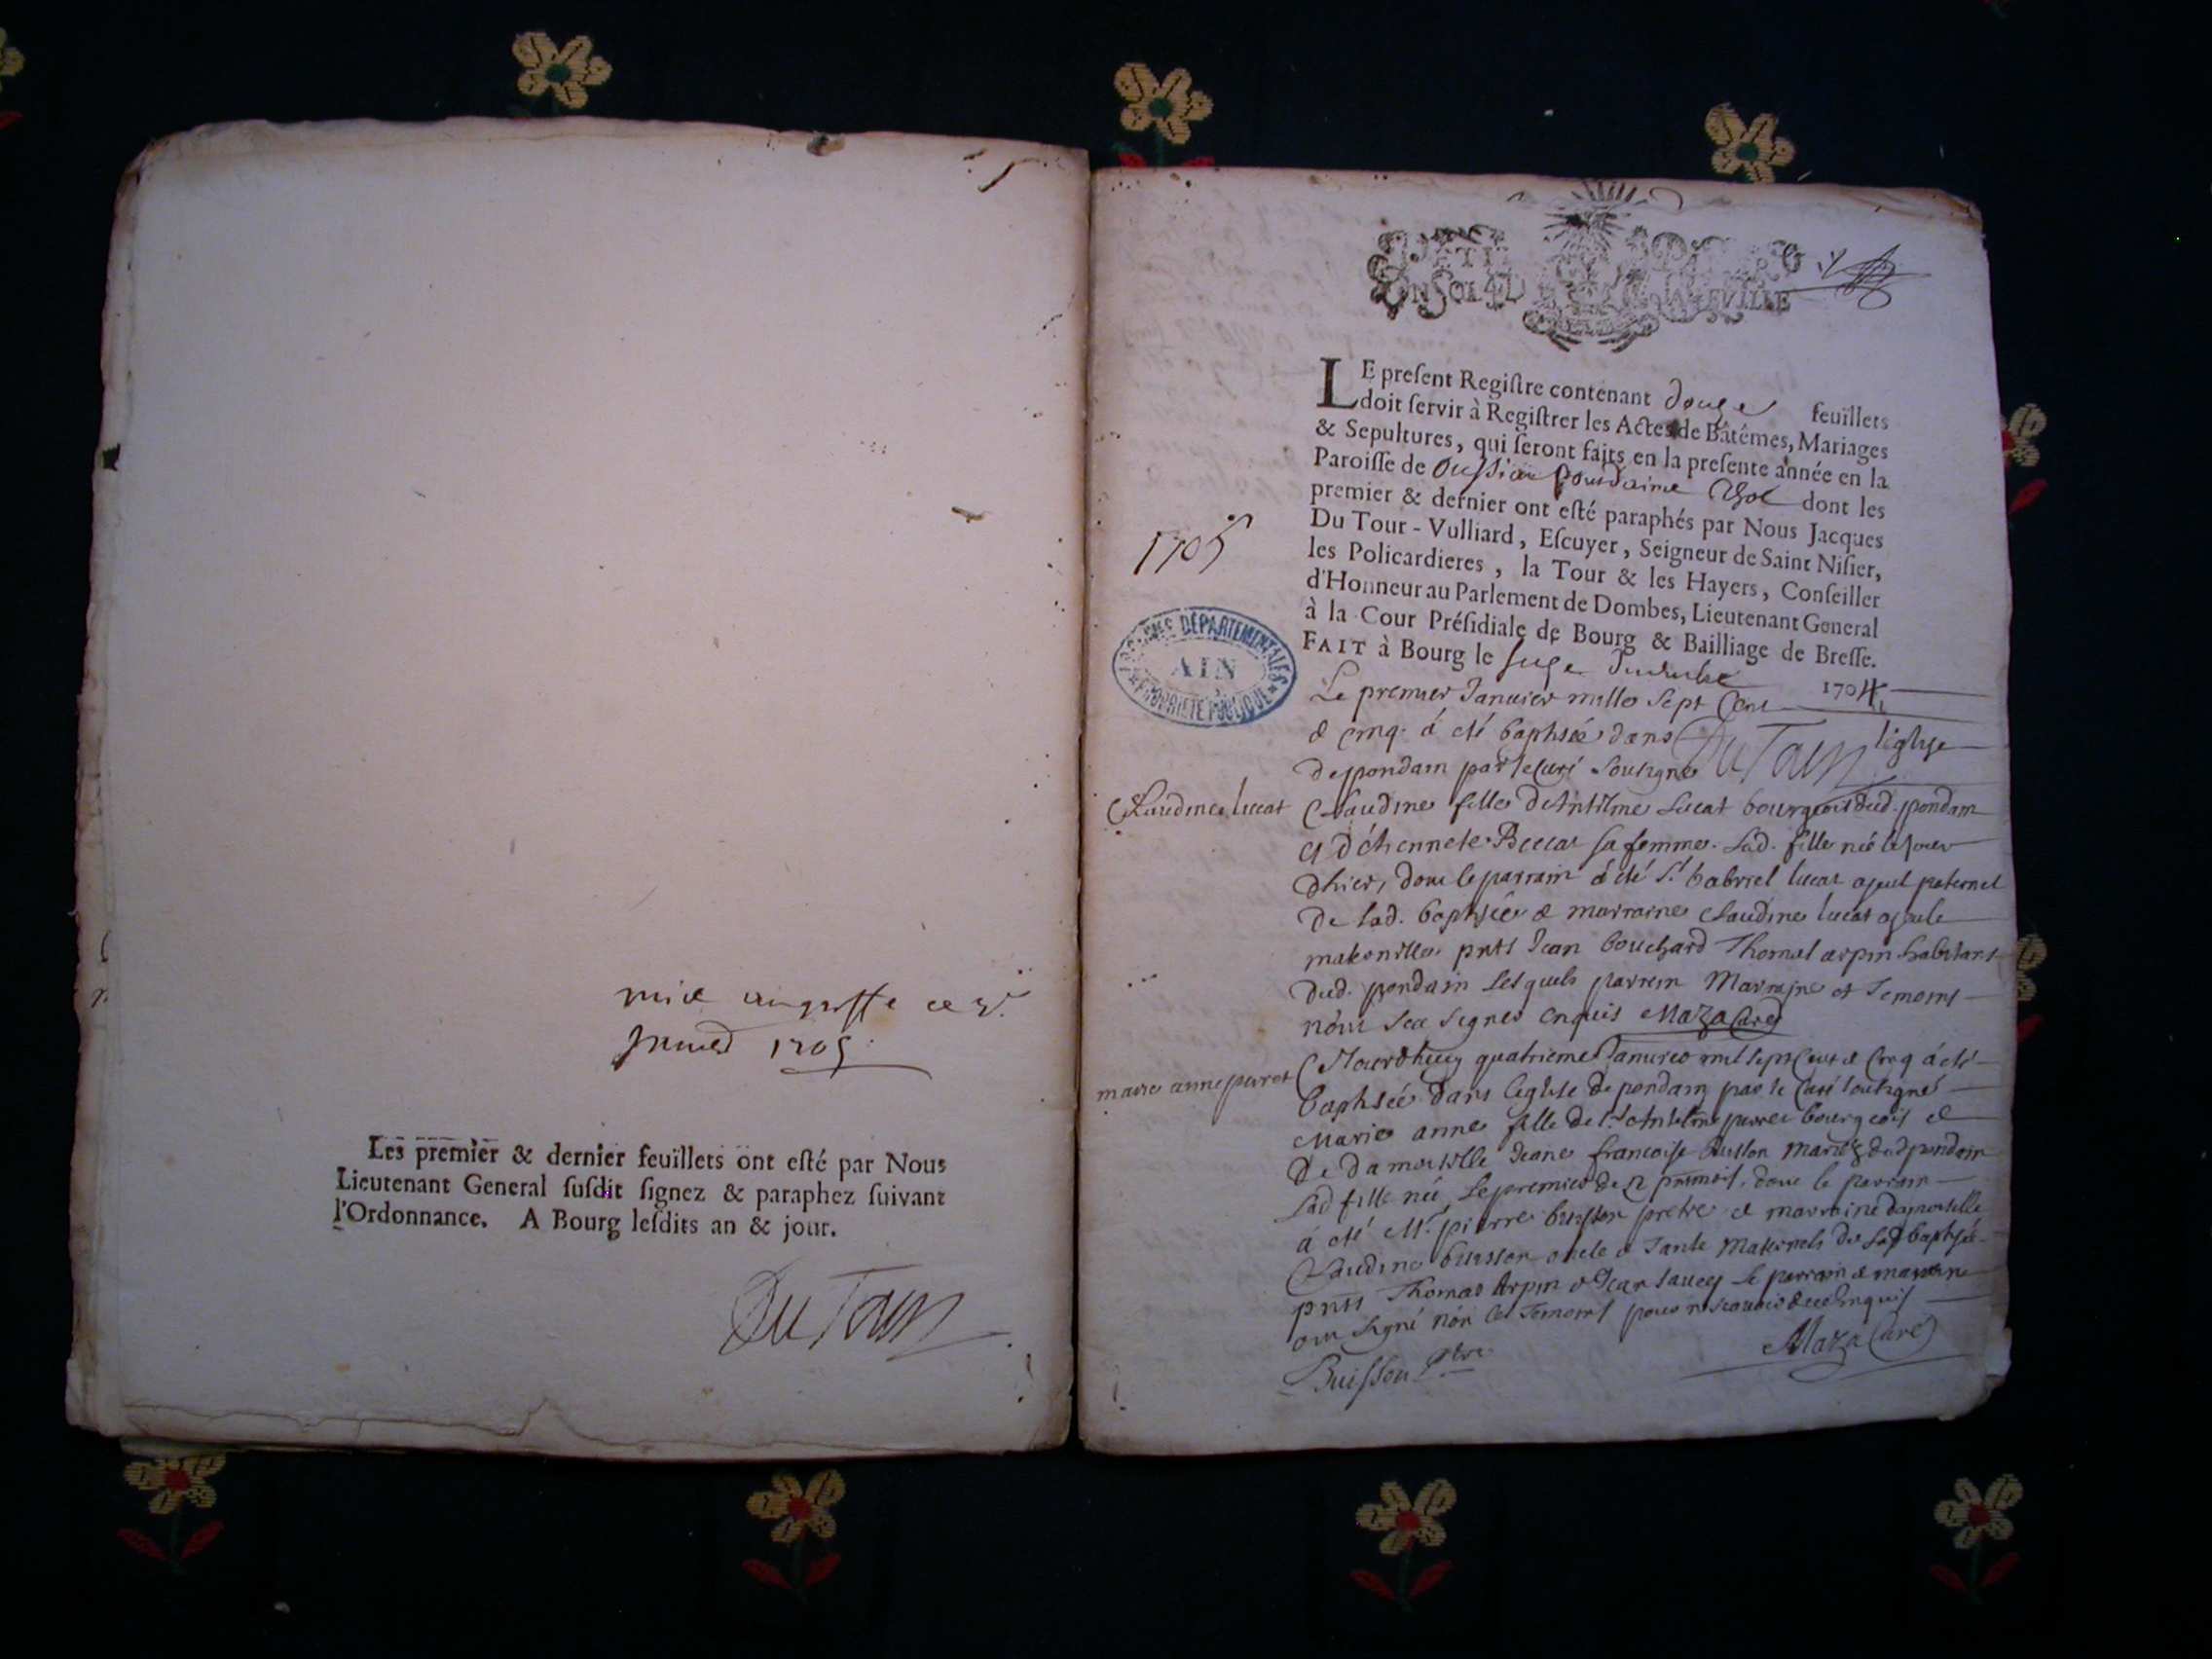 mis au greffe ce
1705
Les premier & dernier feuïllets ont esté par Nous
Lieutenant General susdit signez & paraphez suivant
l'Ordonnance. A Bourg lesdits an & jour.
DuTour
PETIT PAPIER
UN SOL 4 D LA FEUILLE
LE present Registre contenant douze feuïllets
doit servir à Registrer les Actes de Bâtêmes, Mariages
& Sepultures, qui seront faits en la presente année en la
Paroisse de Oussiat Pontdains dont les
premier & dernier ont esté paraphés par Nous Jacques
Du Tour - Vulliard, Escuyer, Seigneur de Saint Nisier,
les Policardieres, la Tour & les Hayers, Conseiller
d'Honneur au Parlement de Dombes, Lieutenant General
à la Cour Présidiale de Bourg & Bailliage de Bresse.
FAIT à Bourg le 1704
1705
ARCHIVES DÉPARTEMENTALES
AIN
PROPRIÉTÉ PUBLIQUE
Le premier Januier mille sept Cens
& cinq a été baptisée dans l'église
DuTour
de pondain par le Curé soussigné
Claudine lucat
Claudine fille d'Antelme Lucat bourgeois dud. pondain
et d'éthiennete Beccat sa femme. Lad. fille née le jour
dhier, dont le parrain a été Sr. Gabriel lucat ayeul paternel
de lad. baptisée & marraine Claudine lucat ayeule
maternelle pnts Jean bouchard Thomas arpin habitans
dud. pondain lesquels parrein Marraine et Temoins
nont sceu signer enquis Maza Curé
marie anne perret
Cejourdhuy quatrieme Januier mil sept Cent & Cinq a été
baptisée dans l'eglise de pondain par le Curé soussigné
Marie anne fille de Sr. Antelme perret bourgeois &
de damoiselle Jeane francoise Buisson mariés dud pondain
Lad fille née le premier de ce pnt mois, dont le parrain
a été Mr. pierre buisson pretre & marraine damoiselle
Claudine buisson oncle & Tante Maternels de lad baptisée
pnts Thomas Arpin & Jean le parrain & marraine
ont signé non les Temoins pour ne scavoir de ce enquis
Buisson Ptre
Maza Curé